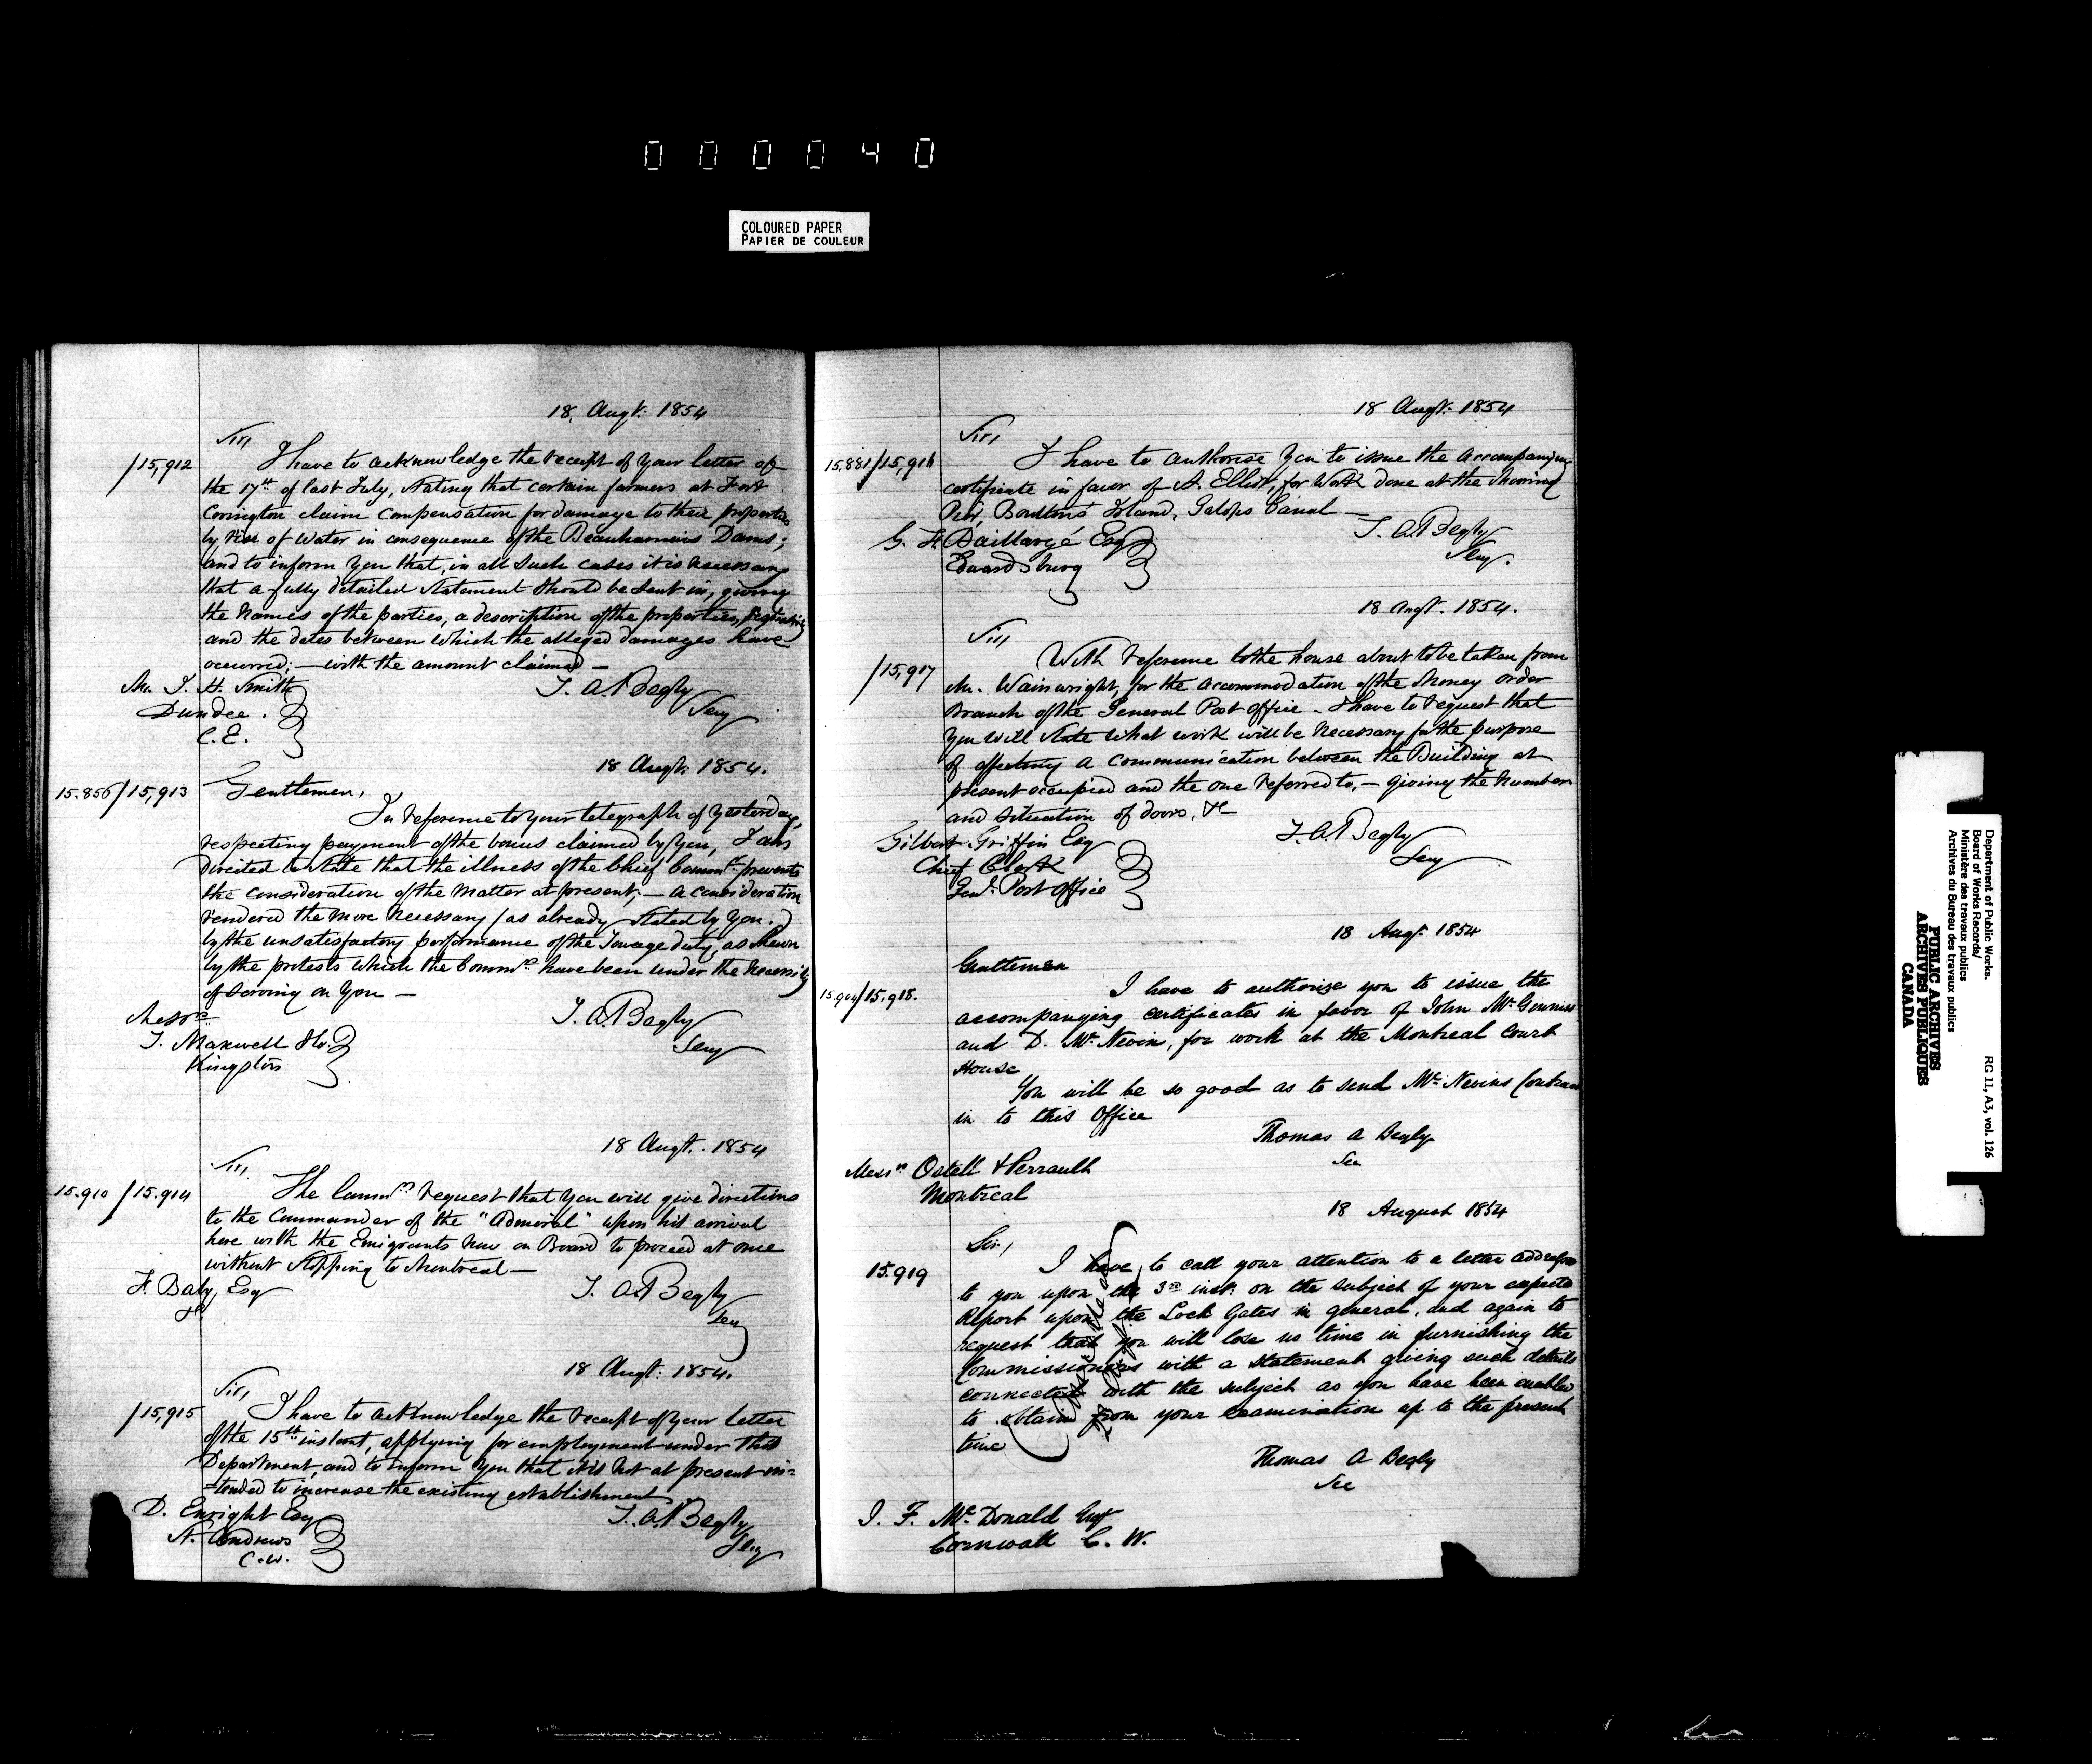 000040
COLOURED PAPER
PAPIER DE COULEUR
18, Augt. 1854
Sir,
/15,912
I have to acknowledge the receipt of your letter of
the 17th of last July, stating that certain farmers at Fort
Covington claim compensation for damage to their properties
by rise of water in consequence of the Beauharnois Dams;
and to inform you that, in all such cases it is necessary
that a fully detailed statement should be sent in, giving
the names of the parties, a description of the properties,
and the dates between which the alleged damages have
occurred; — with the amount claimed —
Mr. J. H. Smith
Dundee.
C.E.
T. A. Begly
Secy
18 Augt. 1854.
15.856/15,913
Gentlemen,
In reference to your telegraph of yesterday,
respecting payment of the bonus claimed by you, I am
directed to state that the illness of the Chief Commr. prevents
the consideration of the matter at present; — a consideration
rendered the more necessary (as already stated by you.)
by the unsatisfactory performance of the Towage duty, as shewn
by the protests which the Commrs. have been under the necessity
of serving on you —
Messrs
J. Maxwell &Co.
Kingston
T. A. Begly
Secy
18 Augt. 1854
Sir,
15.910 /15.914
The Commrs. request that you will give directions
to the Commander of the "Admiral" upon his arrival
here with the Emigrants now on Board to proceed at once
without stopping to Montreal —
F Baby, Esq
&c
T. A. Begly
Secy
18 Augt: 1854.
Sir,
/15,915
I have to acknowledge the receipt of your letter
of the 15th instant, applying for employment under this
Department, and to inform you that it is not at present in=
=tended to increase the existing establishment
D. Enright Esq
St. Andrews
C.W.
T. A. Begly
Secy
18 Augt. 1854
Sir,
15.881/15,916
I have to authorise you to issue the accompanying
certificate in favor of A. Elliot, for work done at the Mooring
Pier, Boulton's Island, Galops Canal —
G. F. Baillargé Esq
Edwardsburg
T. A. Begly
Secy.
18 Augt. 1854.
Sir,
/15,917
With reference to the house about to be taken from
Mr. Wainwright, for the accommodation of the Money order
Branch of the General Post Office – I have to request that
you will state what work will be necessary for the purpose
of effecting a communication between the Building at
present occupied and the one referred to, – giving the number
and situation of doors, &c
Gilbert Griffin Esq
Chief Clerk
Genl. Post office
T. A. Begly
Secy
18 Augt. 1854
Gentlemen
15.904/15.918.
I have to authorize you to issue the
accompanying certificates in favor of John McGinnis
and D. McNevin, for work at the Montreal Court
House
You will be so good as to send McNevins Contract
in to this Office
Thomas A Begly
Sec
Messrs Ostell & Perrault
Montreal
18 August 1854
Sir,
15.919
I have to call your attention to a letter addressed
to you upon the 3rd inst. on the subject of your expected
Report upon the Lock Gates in general, and again to
request that you will lose no time in furnishing the
Commissioners with a statement giving such details
connected with the subject as you have been enabled
to obtain from your examination up to the present
time
Thomas A Begly
Sec
J. F. McDonald Esq
Cornwall C. W.
Department of Public Works.
Board of Works Records/
Ministère des travaux publics
Archives du Bureau des travaux publics
RG 11, A3, vol. 126
PUBLIC ARCHIVES
ARCHIVES PUBLIQUES
CANADA